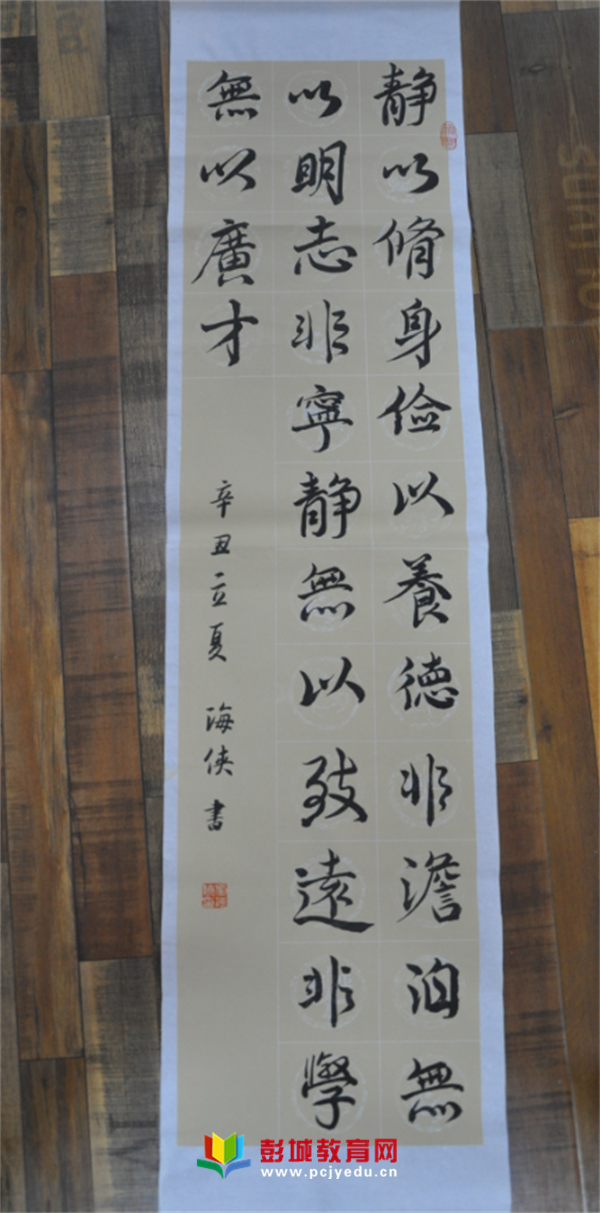 静以脩身儉以養德非澹泊無
以明志非寧静無以致遠非學
無以廣才
辛丑立夏 海侠書
彭城教育网
www.pcjyedu.cn